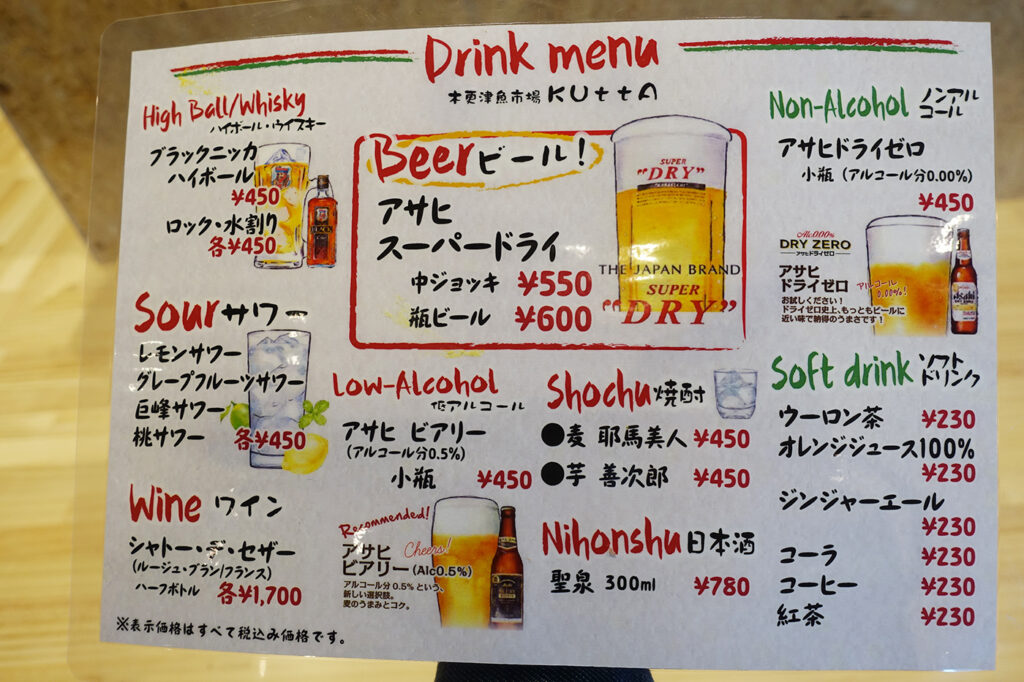 Drink menu
木更津魚市場 KUttA
High Ball/Whisky
ハイボール・ウイスキー
ブラックニッカ
ハイボール
¥450
ロック・水割り
各¥450
Beerビール!
アサヒ
スーパードライ
中ジョッキ ¥550
瓶ビール ¥600
SUPER
"DRY"
THE JAPAN BRAND
SUPER
"DRY"
Non-Alcohol ノンアル
コール
アサヒドライゼロ
小瓶 (アルコール分0.00%)
¥450
Alc.0.00%
DRY ZERO
アサヒドライゼロ
アサヒ
ドライゼロ
アルコール
0.00%!
お試しください!
ドライゼロ史上、もっともビールに
近い味で納得のうまさです!
Sourサワー
レモンサワー
グレープフルーツサワー
巨峰サワー
桃サワー 各¥450
Low-Alcohol
低アルコール
アサヒ ビアリー
(アルコール分0.5%)
小瓶 ¥450
Recommended!
Cheers!
アサヒ
ビアリー(Alc0.5%)
アルコール分0.5%という、
新しい選択肢。
麦のうまみとコク。
Shochu焼酎
●麦 耶馬美人 ¥450
●芋 善次郎 ¥450
Nihonshu日本酒
聖泉 300ml ¥780
Soft drink ソフト
ドリンク
ウーロン茶 ¥230
オレンジジュース100%
¥230
ジンジャーエール
¥230
コーラ ¥230
コーヒー ¥230
紅茶 ¥230
Wine ワイン
シャトー・デ・セザー
(ルージュ・ブラン/フランス)
ハーフボトル 各¥1,700
※表示価格はすべて税込み価格です。